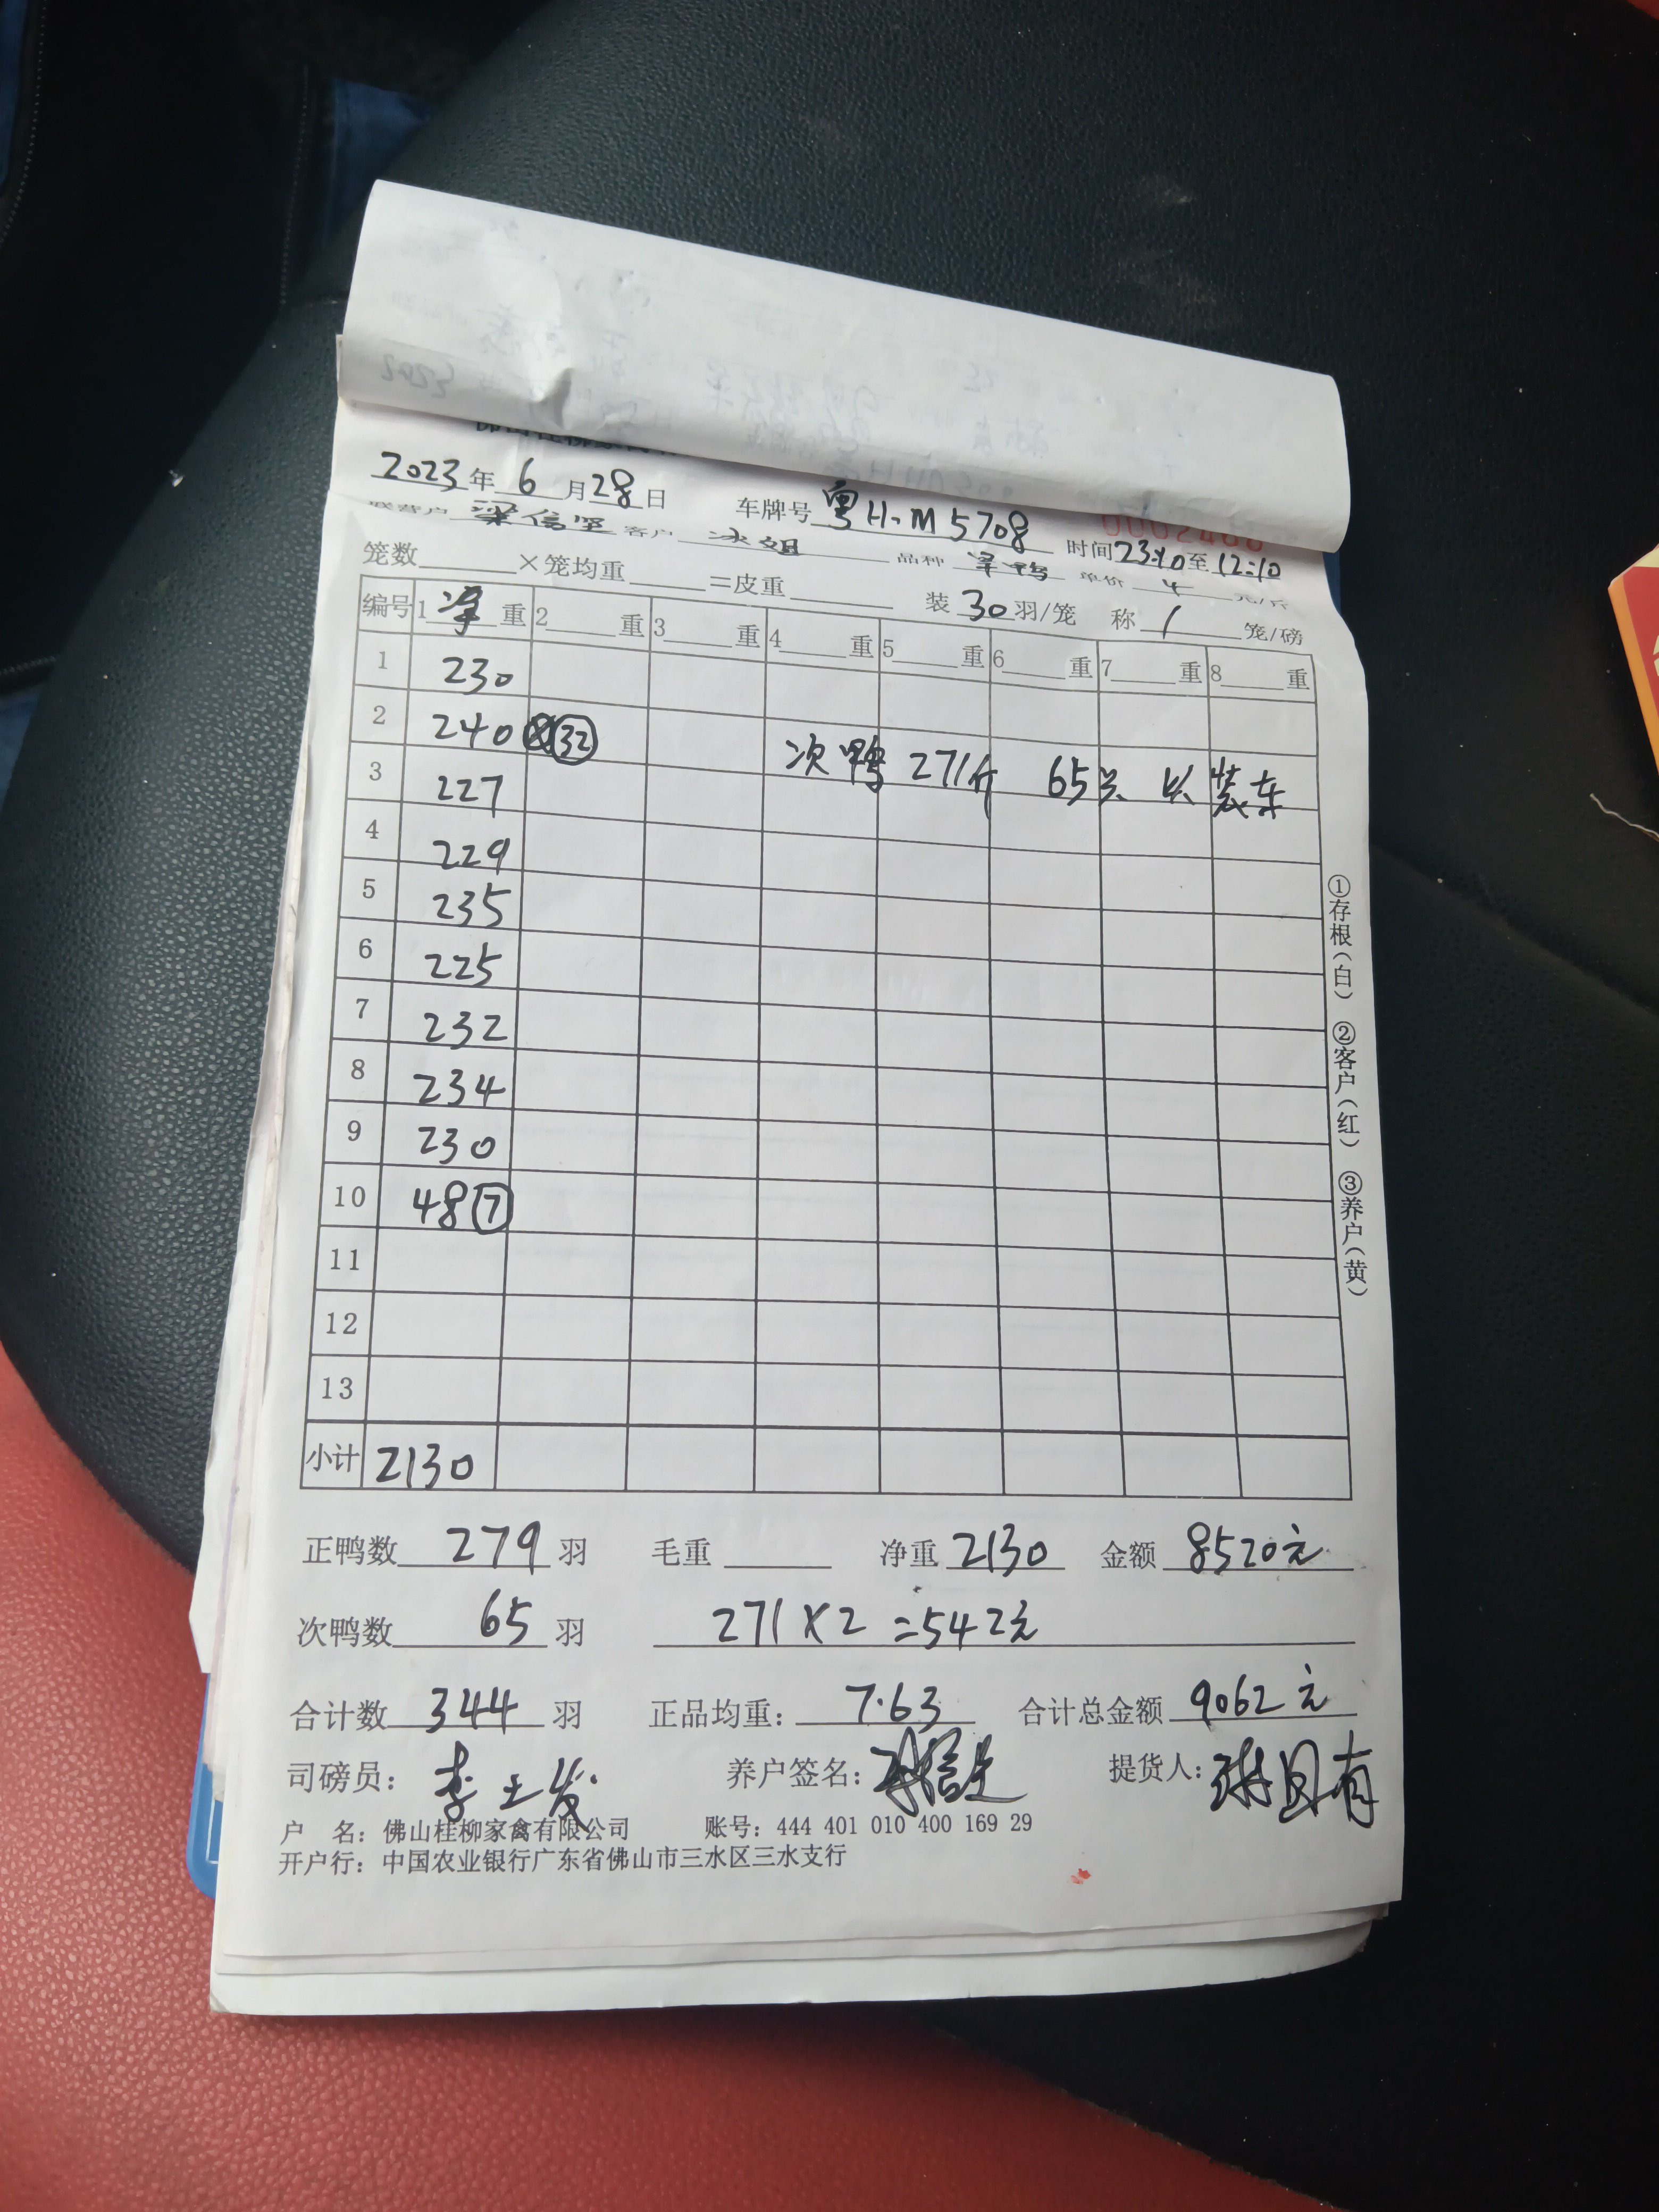 2023年 6 月 28 日 车牌号 粤H·M5708 时间 23:10 至 12:10
客户 冰姐 品种 单价 4
笼数 ×笼均重 =皮重 装 30 羽/笼 称 1 笼/磅
编号 1 净 重 2 重 3 重 4 重 5 重 6 重 7 重 8 重
1 230
2 240 32
次鸭 271斤 65只 以装车
3 227
4 229
5 235
6 225
7 232
8 234
9 230
10 48 7
11
12
13
小计 2130
正鸭数 279 羽 毛重 净重 2130 金额 8520元
次鸭数 65 羽 271×2=542元
合计数 344 羽 正品均重: 7.63 合计总金额 9062元
司磅员: 养户签名: 提货人:
户 名: 佛山桂柳家禽有限公司 账号: 444 401 010 400 169 29
开户行: 中国农业银行广东省佛山市三水区三水支行
①存根(白) ②客户(红) ③养户(黄)